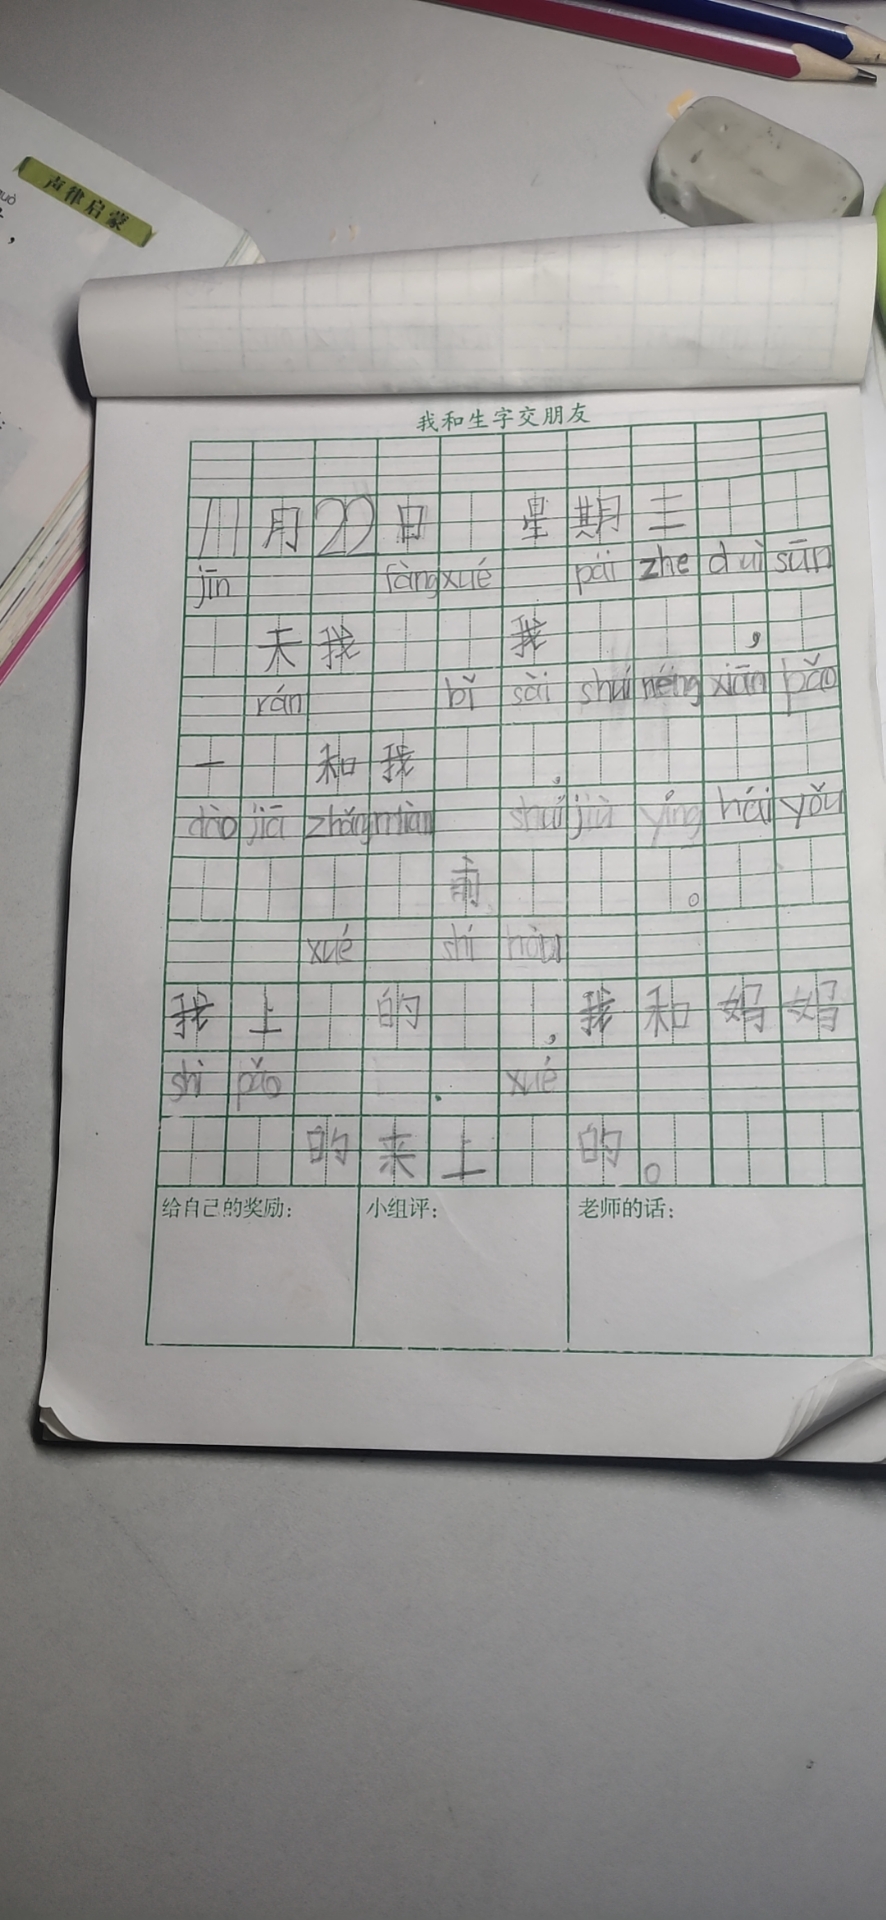 声律启蒙
我和生字交朋友
11月22日 星期三
jīn fàng xué pái zhe duì sūn
天我 我 ,
rán bǐ sài shuí néng xiān pǎo
一 和我 ,
dào jiā zhǎng miàn shuí jiù yíng hái yǒu
前 。
xué shí hòu
我上 的 ,我和妈妈
shì pǎo xué
的来上 的。
给自己的奖励:
小组评:
老师的话: